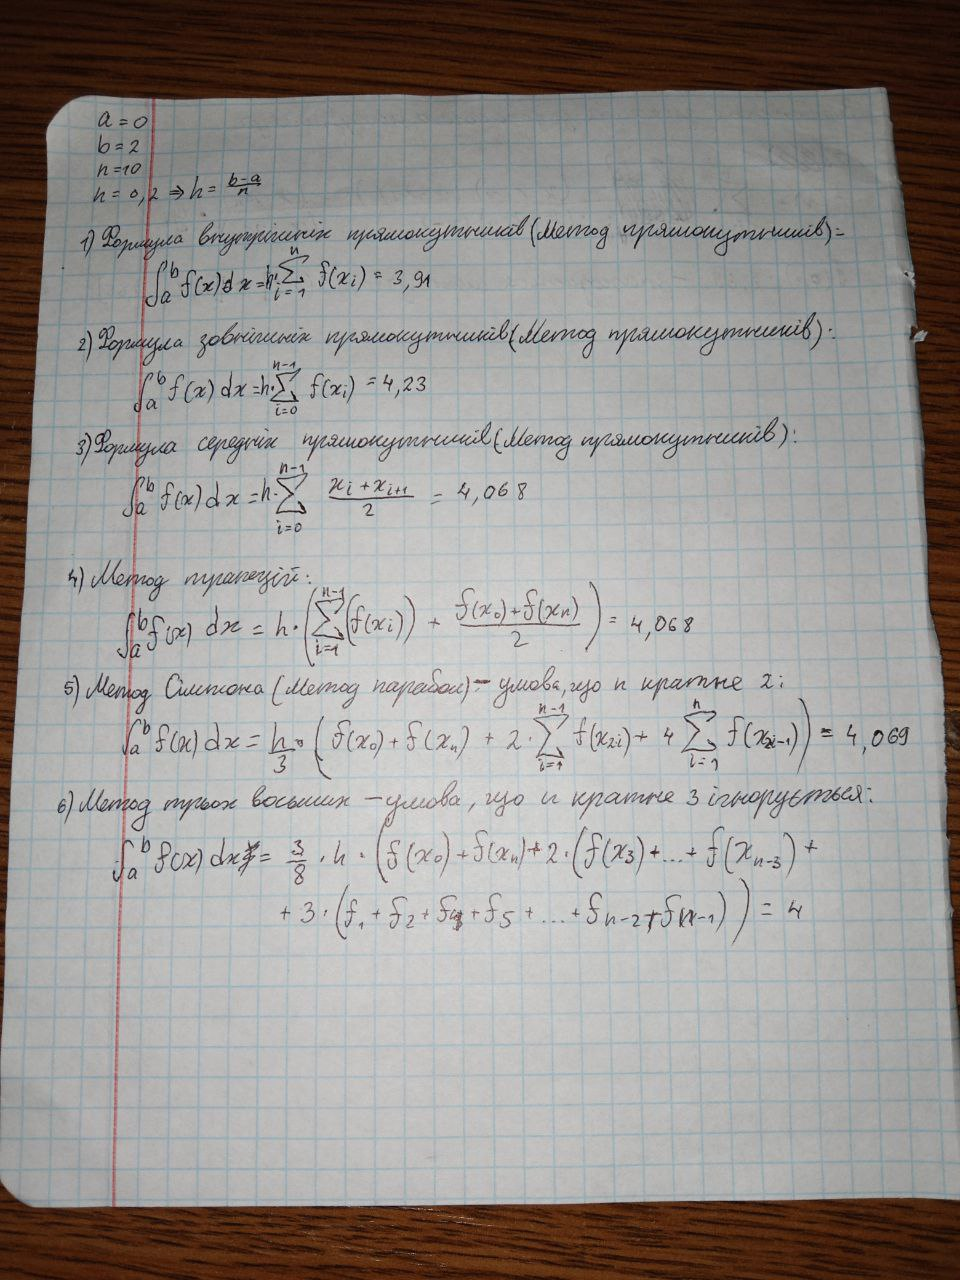 a = 0
b = 2
n = 10
h = 0,2 ⇒ h = \frac{b-a}{n}
1) Формула внутрішніх прямокутників (Метод прямокутників) =
∫_a^b f(x) dx = h · ∑_{i=1}^{n} f(x_i) = 3,91
2) Формула зовнішніх прямокутників (Метод прямокутників):
∫_a^b f(x) dx = h · ∑_{i=0}^{n-1} f(x_i) = 4,23
3) Формула середніх прямокутників (Метод прямокутників):
∫_a^b f(x) dx = h · ∑_{i=0}^{n-1} \frac{x_i + x_{i+1}}{2} = 4,068
4) Метод трапецій:
∫_a^b f(x) dx = h · (∑_{i=1}^{n-1} (f(x_i)) + \frac{f(x_0) + f(x_n)}{2}) = 4,068
5) Метод Сімпсона (Метод парабол) - умова, що n кратне 2:
∫_a^b f(x) dx = \frac{h}{3} · (f(x_0) + f(x_n) + 2 · ∑_{i=1}^{n-1} f(x_{2i}) + 4 ∑_{i=1}^{n} f(x_{2i-1})) = 4,069
6) Метод трьох восьмих - умова, що n кратне 3 ігнорується:
∫_a^b f(x) dx = \frac{3}{8} · h · (f(x_0) + f(x_n) + 2 · (f(x_3) + ... + f(x_{n-3}) +
+ 3 · (f_1 + f_2 + f_4 + f_5 + ... + f_{n-2} + f_{n-1})) = 4